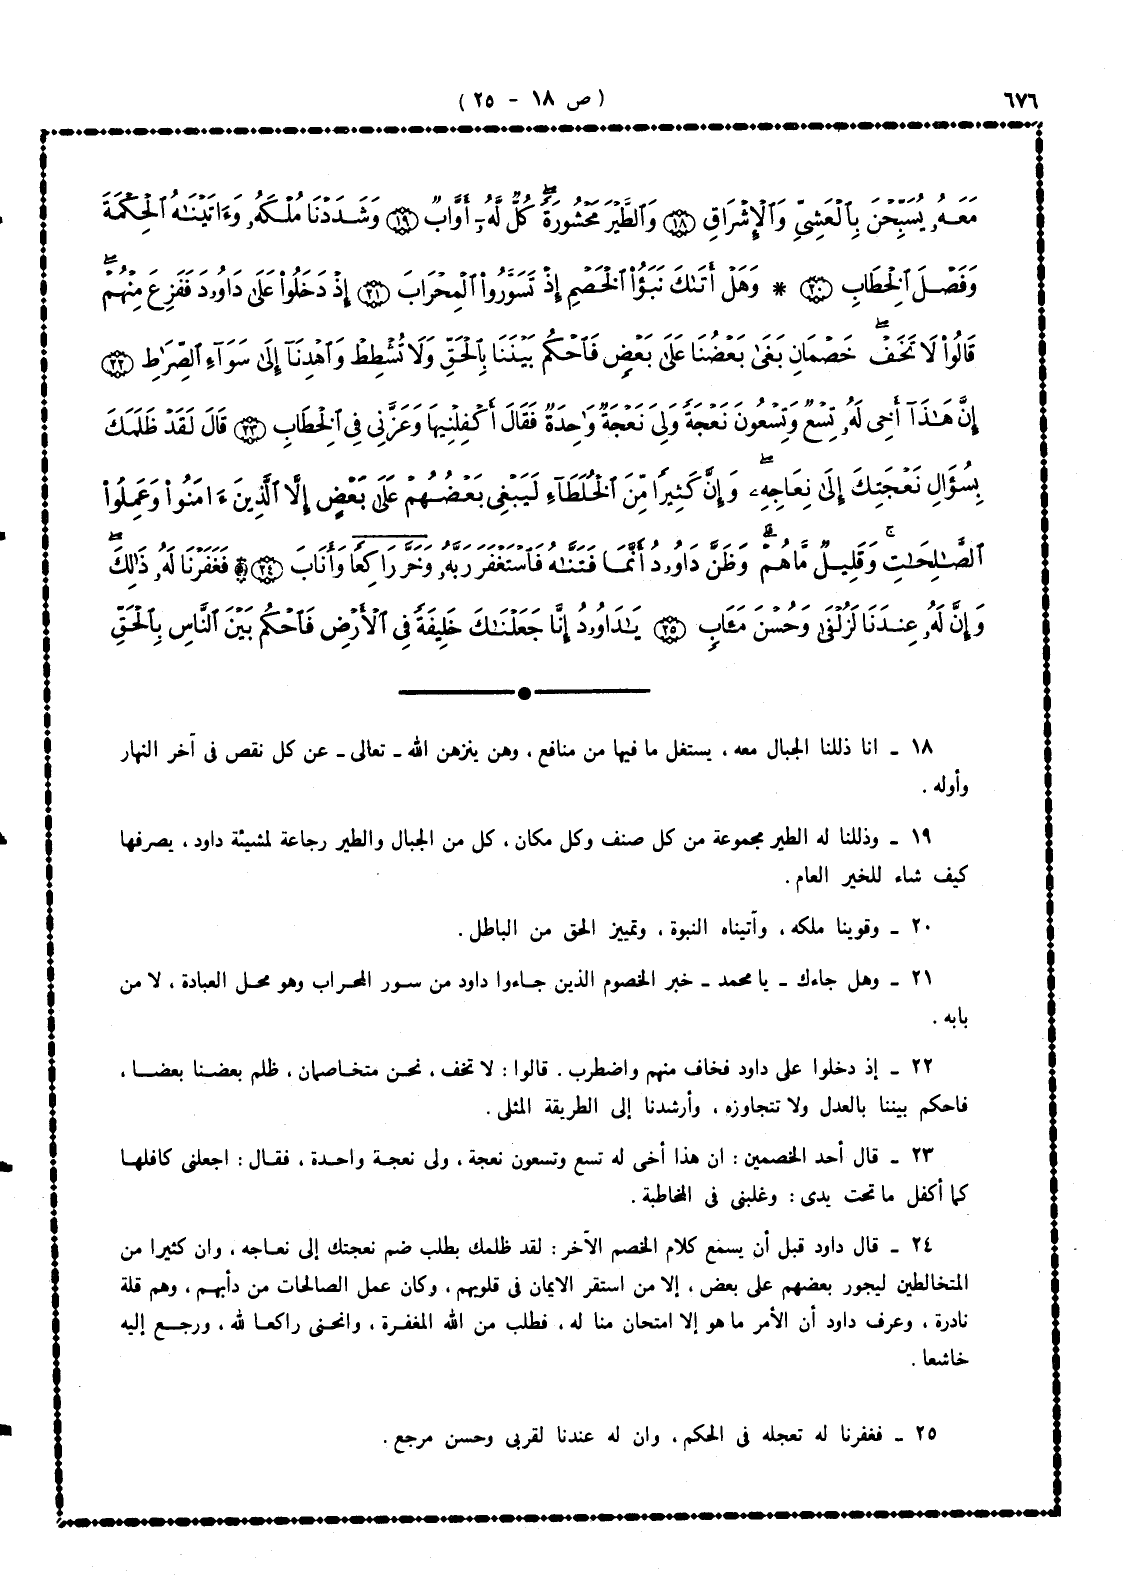 ٦٧٦
( ص ١٨ - ٢٥ )
مَعَهُۥ يُسَبِّحْنَ بِٱلْعَشِىِّ وَٱلْإِشْرَاقِ ۝١٨ وَٱلطَّيْرَ مَحْشُورَةً ۖ كُلٌّ لَّهُۥٓ أَوَّابٌ ۝١٩ وَشَدَدْنَا مُلْكَهُۥ وَءَاتَيْنَٰهُ ٱلْحِكْمَةَ
وَفَصْلَ ٱلْخِطَابِ ۝٢٠ * وَهَلْ أَتَىٰكَ نَبَؤُا۟ ٱلْخَصْمِ إِذْ تَسَوَّرُوا۟ ٱلْمِحْرَابَ ۝٢١ إِذْ دَخَلُوا۟ عَلَىٰ دَاوُۥدَ فَفَزِعَ مِنْهُمْ ۖ
قَالُوا۟ لَا تَخَفْ ۖ خَصْمَانِ بَغَىٰ بَعْضُنَا عَلَىٰ بَعْضٍ فَٱحْكُم بَيْنَنَا بِٱلْحَقِّ وَلَا تُشْطِطْ وَٱهْدِنَآ إِلَىٰ سَوَآءِ ٱلصِّرَٰطِ ۝٢٢
إِنَّ هَٰذَآ أَخِى لَهُۥ تِسْعٌ وَتِسْعُونَ نَعْجَةً وَلِىَ نَعْجَةٌ وَٰحِدَةٌ فَقَالَ أَكْفِلْنِيهَا وَعَزَّنِى فِى ٱلْخِطَابِ ۝٢٣ قَالَ لَقَدْ ظَلَمَكَ
بِسُؤَالِ نَعْجَتِكَ إِلَىٰ نِعَاجِهِۦ ۖ وَإِنَّ كَثِيرًا مِّنَ ٱلْخُلَطَآءِ لَيَبْغِى بَعْضُهُمْ عَلَىٰ بَعْضٍ إِلَّا ٱلَّذِينَ ءَامَنُوا۟ وَعَمِلُوا۟
ٱلصَّٰلِحَٰتِ وَقَلِيلٌ مَّا هُمْ ۗ وَظَنَّ دَاوُۥدُ أَنَّمَا فَتَنَّٰهُ فَٱسْتَغْفَرَ رَبَّهُۥ وَخَرَّ رَاكِعًا وَأَنَابَ ۝٢٤ ۩ فَغَفَرْنَا لَهُۥ ذَٰلِكَ ۖ
وَإِنَّ لَهُۥ عِندَنَا لَزُلْفَىٰ وَحُسْنَ مَـَٔابٍ ۝٢٥ يَٰدَاوُۥدُ إِنَّا جَعَلْنَٰكَ خَلِيفَةً فِى ٱلْأَرْضِ فَٱحْكُم بَيْنَ ٱلنَّاسِ بِٱلْحَقِّ
١٨ ـ انا ذللنا الجبال معه ، يستغل ما فيها من منافع ، وهن ينزهن الله ـ تعالى ـ عن كل نقص فى آخر النهار
وأوله .
١٩ ـ وذللنا له الطير مجموعة من كل صنف وكل مكان ، كل من الجبال والطير رجاعة لمشيئة داود ، يصرفها
كيف شاء للخير العام .
٢٠ ـ وقوينا ملكه ، وآتيناه النبوة ، وتمييز الحق من الباطل .
٢١ ـ وهل جاءك ـ يا محمد ـ خبر الخصوم الذين جاءوا داود من سور المحراب وهو محل العبادة ، لا من
بابه .
٢٢ ـ إذ دخلوا على داود فخاف منهم واضطرب . قالوا : لا تخف ، نحن متخاصمان ، ظلم بعضنا بعضا ،
فاحكم بيننا بالعدل ولا تتجاوزه ، وأرشدنا إلى الطريقة المثلى .
٢٣ ـ قال أحد الخصمين : ان هذا أخى له تسع وتسعون نعجة ، ولى نعجة واحدة ، فقال : اجعلنى كافلها
كما أكفل ما تحت يدى : وغلبنى فى المخاطبة .
٢٤ ـ قال داود قبل أن يسمع كلام الخصم الآخر : لقد ظلمك بطلب ضم نعجتك إلى نعاجه ، وان كثيرا من
المتخالطين ليجور بعضهم على بعض ، إلا من استقر الايمان فى قلوبهم ، وكان عمل الصالحات من دأبهم ، وهم قلة
نادرة ، وعرف داود أن الأمر ما هو إلا امتحان منا له ، فطلب من الله المغفرة ، وانحنى راكعا لله ، ورجع إليه
خاشعا .
٢٥ ـ فغفرنا له تعجله فى الحكم ، وان له عندنا لقربى وحسن مرجع .